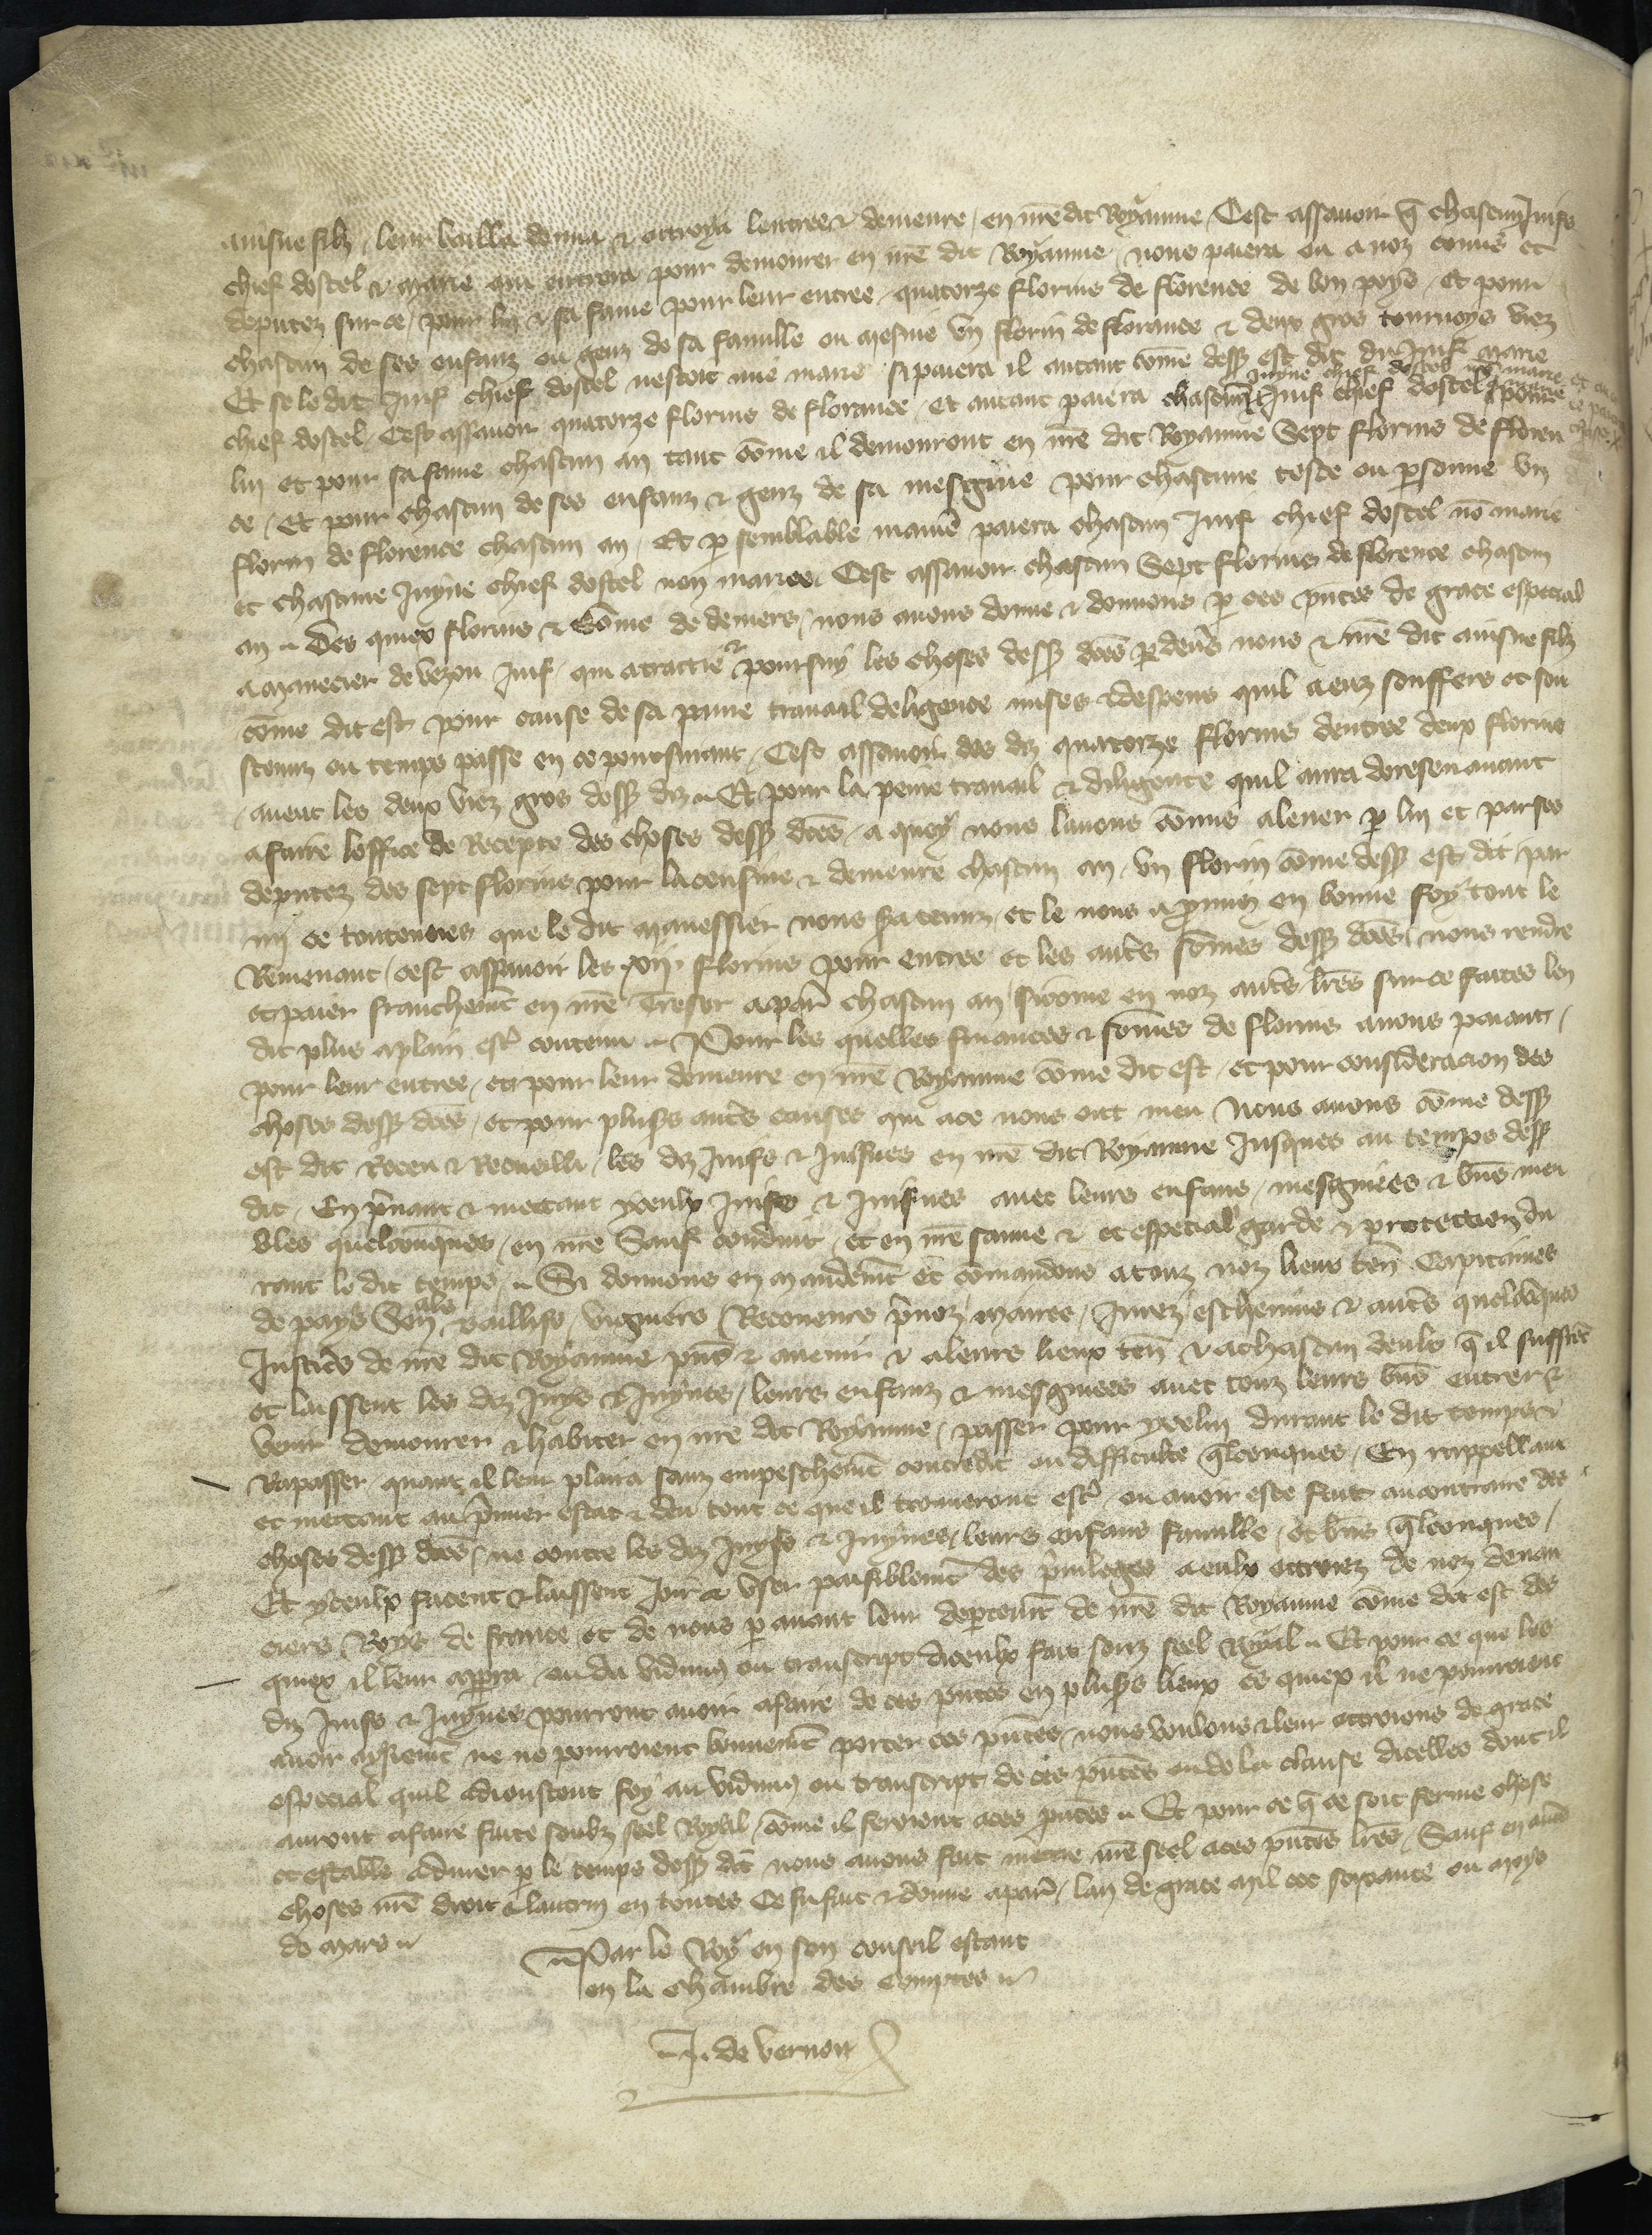 ainsne filz leur bailla donna & ottroya lentree & demeure en nre dit Royaume Cest assavoir q chascun Juif
chief dostel & marie qui entrera pour demourer en nre dit Royaume nous paiera ou a noz commis et
deputez sur ce pour lui & sa fame pour leur entree quatorze florins de florence de bon poys Et pour
chascun de ses enfanz ou genz de sa famille ou mesnie un florin de florance & deux gros tournoys viez
Et se le dit Juif chief dostel nestoit mie marie si paiera il autant come dess est dit du Juif marie
chief dostel Cest assavoir quatorze florins de florance Et autant paiera chascune Juyne chief dostel non mariee chascun Juif chief dostel pour
lui et pour sa fame chascun an tant come il demourront en nre dit Royaume Sept florins de floren
ce Et pour chascun de ses enfanz & genz de sa mesgnie pour chascune teste ou psonne un
florin de florence chascun an Et p semblable maniere paiera chascun Juif chief dostel no marie
et chascune Juyne chief dostel non mariee Cest assavoir chascun Sept florins de florence chascun
an Des quiex florins & Some de deniers nous avons donne & donnons p ces pntes de grace especial
a Manecier de vezou Juif qui a traictie & poursuy les choses dess dces p devs nous & nre dit ainsne filz
come dit est pour cause de sa paine travail deligence mises & despens quil a euz souffers et sou
stenuz ou temps passe en ce poursuant Cest assavoir des diz quatorze florins dentree deux florins
avent les deux viez gros dess diz Et pour la peine travail & diligence quil aura doresenavant
a faire loffice de Recepte des choses dess dces a quoy nous lavons comis a lever p lui et par ses
deputez des sept florins pour la censine & demeure chascun an un florin come dess est dit par
mi ce toutevoies que le dit Manessier nous sera tenuz et le nous a pmis en bonne foy tout le
Remenant cest assavoir les xij florins pour entree et les autres somes dess dces nous rendre
et paier franchemt en nre Tresor a par chascun an si come en noz autres lres sur ce faites len
dit plus a plain estre contenu Pour les quelles finances & somes de florins avons paiant
pour leur entree et pour leur demeure en nre Royaume come dit est et pour consideracion des
choses dess dces et pour plusrs autres causes qui a ce nous ont meu Nous avons come dess
est dit Receu & Recueilli les diz Juifs & Juifves en nre dit Royaume Jusques au temps dess
dit En prnant & mettant yceulx Juifs & Juifves avec leurs enfans mesgniees & bns meu
bles quelconques en nre Sauf conduit et en nre sauve & et especial garde & protection du
rant le dit temps Si donnons en mandemt et comandons a touz noz lieux ten Capitaines
de pays Senals baillifs viguiers Receveurs prvoz maires Jurez eschevins & autres quelconques
Justicrs de nre dit Royaume pns & avenir & a leurs lieux ten & a chascun deulx q il suffret
et laissent les diz Juys & Juynes leurs enfanz & mesgniees avec touz leurs bns entrer &
venir demourer & habiter en nre dit Royaume passer pour ycelui durant le dit temps &
Rapasser quant il leur plaira sanz empeschemt contredit ou difficulte qlconques En rappellant
et mettant au prmier estat & deu tout ce que il trouveront estre ou avoir este fait au contraire des
choses dess dces ne contre les diz Juyfs & Juynes leurs enfans famille et bns qlconques
Et yceulx facent & laissent Joir & user paisiblemt des privileges a eulx ottroiez de noz devan
ciers Roys de france et de nous p avant leur deptemt de nre dit Royaume come dit est des
quiex il leur apperra ou du vidimus ou transcript diceulx fait souz seel Royal Et pour ce que les
diz Juifs & Juynes pourront avoir a faire de ces pntes en plusrs lieux es quiex il ne pourroient
avoir ne ne pourroient bonnemt porter ces pntes nous voulons & leur ottroions de grace
especial quil adioustent foy au vidimus ou transcript de ces pntes ou de la clause dicelles dont il
auront a faire faite soubz seel Royal come il feroient a ces pntes Et pour ce q ce soit ferme chose
et estable a durer p le temps dess dit nous avons fait mettre nre seel a ces pntes lres Sauf en autres
choses nre droit & lautrui en toutes Ce fu fait & donne a par lan de grace mil ccc soixante ou moys
de mars
Par le Roy en son conseil estant
en la chambre des comptes
J. de vernon